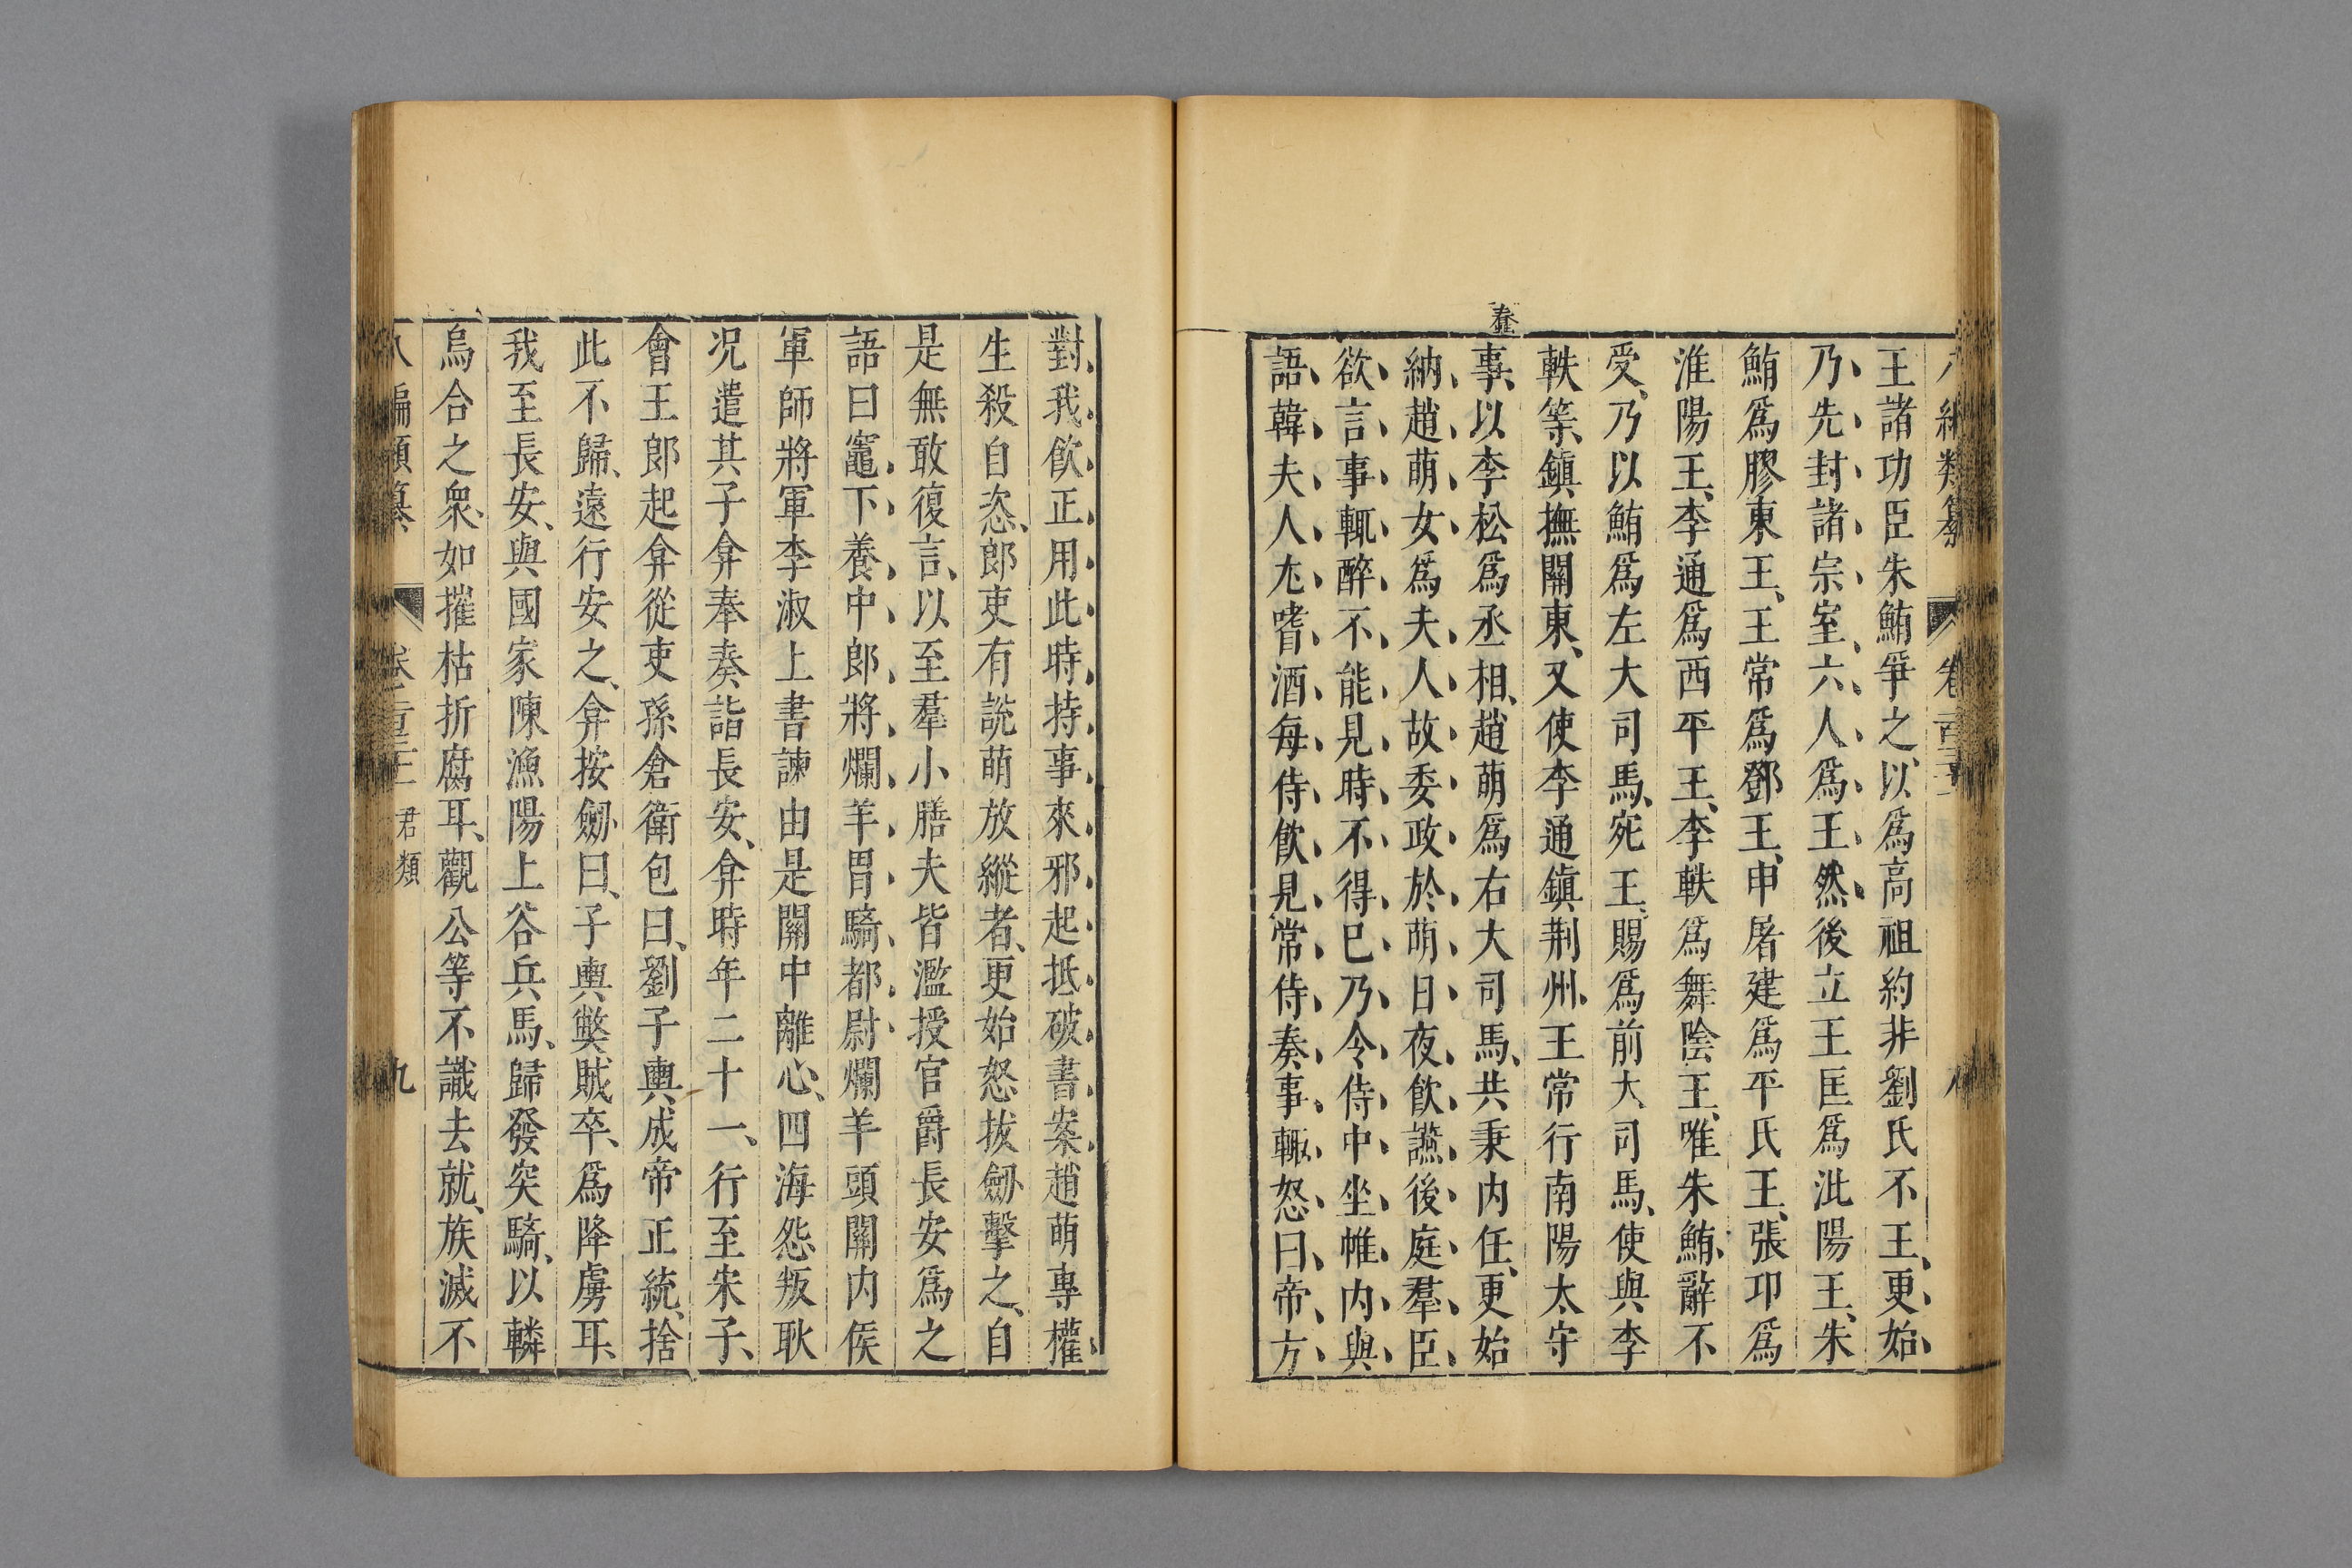 王諸功臣朱鮪爭之、以爲高祖約非劉氏不王、更始
乃先封諸宗室六人爲王然後立王匡爲泚陽王、朱
鮪爲膠東王、王常爲鄧王、申屠建爲平氏王、張卬爲
淮陽王、李通爲西平王、李軼爲舞陰王、唯朱鮪辭不
受、乃以鮪爲左大司馬、宛王賜爲前大司馬、使與李
軼等、鎮撫關東、又使李通鎮荆州、王常行南陽太守
事、以李松爲丞相、趙萌爲右大司馬、共秉内任、更始
納趙萌女爲夫人故委政於萌日夜飲讌後庭羣臣
欲言事輒醉不能見時不得已乃令侍中坐帷内與
語韓夫人尤嗜酒每侍飲見常侍奏事輒怒曰帝方
對我飲正用此時持事來邪起抵破書案趙萌專權
生殺自恣、郎吏有說萌放縱者、更始怒拔劒擊之、自
是無敢復言、以至羣小膳夫皆濫授官爵長安爲之
語曰竈下養中郎將爛羊胃騎都尉爛羊頭關内侯
軍師將軍李淑上書諫由是關中離心、四海怨叛耿
况遣其子弇奉奏詣長安、弇時年二十一、行至宋子、
會王郎起弇從吏孫倉衛包曰、劉子輿、成帝正統、捨
此不歸、遠行安之、弇按劒曰、子輿獘賊卒、爲降虜耳、
我至長安、與國家陳漁陽上谷兵馬、歸發突騎、以轔
烏合之衆、如摧枯折腐耳、觀公等不識去就、族滅不
編類纂
君類
九